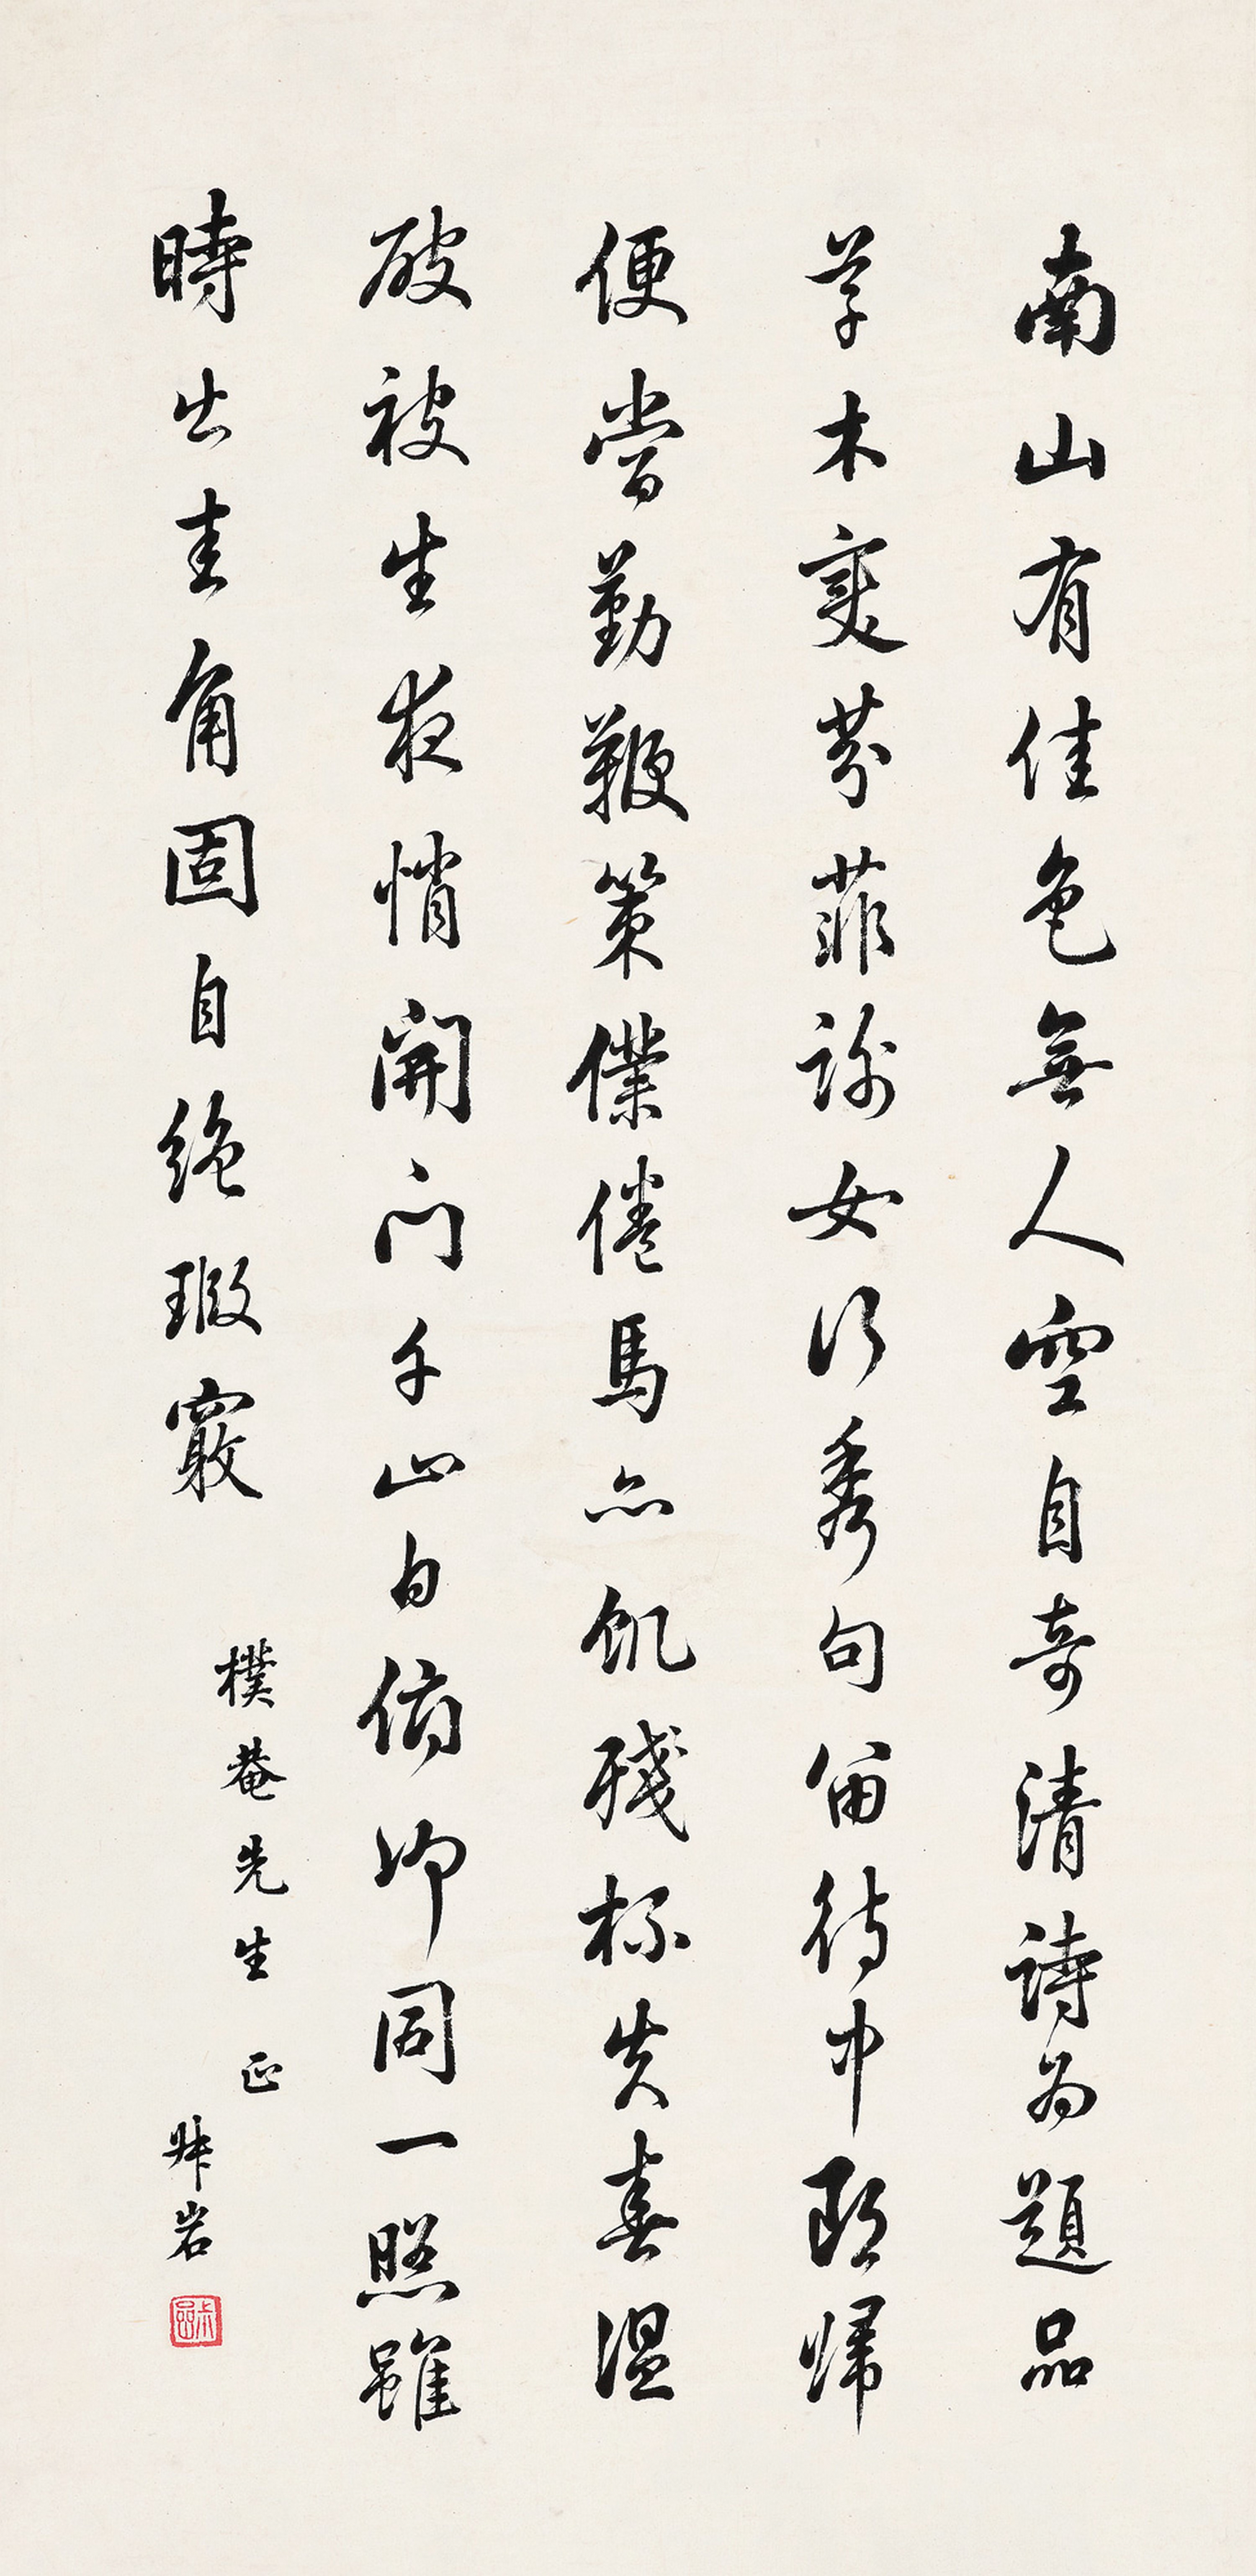 南山有佳色無人空自奇清詩為題品
草木變芬菲謝女得秀句留待中郎歸
便當勤鞭策僕倦馬亦飢殘杯失春溫
破被生夜悄開門千山白俯仰同一照雖
時出圭角固自絕瑕竅
樸菴先生 正
叔岩